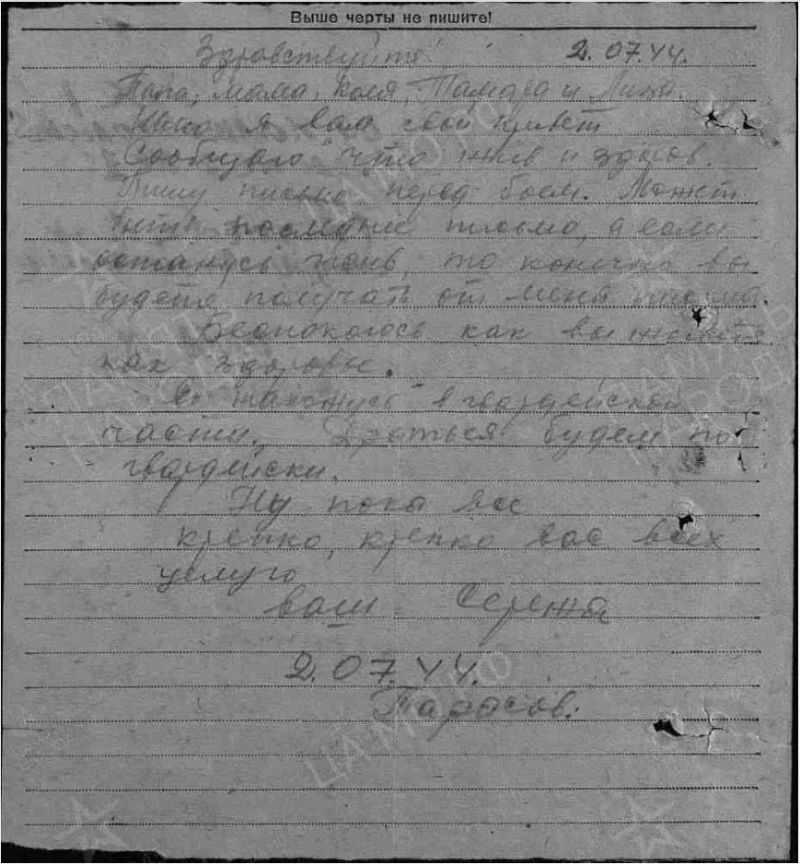 Выше черты не пишите!
Здравствуйте 2.07.44.
Папа, мама, Коля, Тамара и Лиза.
Шлю я вам свой привет
Сообщаю что жив и здоров.
Пишу письмо перед боем. Может
быть последнее письмо, а если
останусь жив, то конечно вы
будете получать от меня письма.
Беспокоюсь как вы живете
как здоровье.
Я нахожусь в гвардейской
части. Драться будем по
гвардейски.
Ну пока все
крепко, крепко вас всех
целую
ваш Сережа
2.07.44.
Тарасов.
ЦАМО РФ